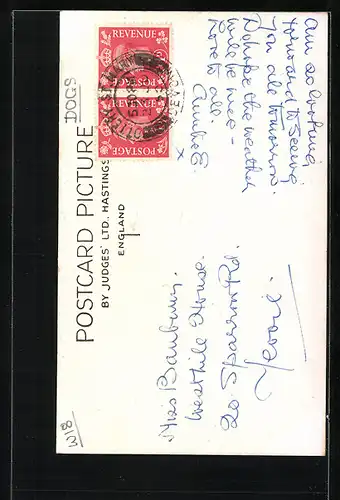 DOGS
POSTCARD PICTURE
BY JUDGES' LTD. HASTINGS
ENGLAND
REVENUE
POSTAGE
REVENUE
POSTAGE
Am so looking
forward to seeing
you all tomorrow.
Do hope the weather
will be nice -
Love to all.
x
Miss Banbury.
Westhile House.
20
W18